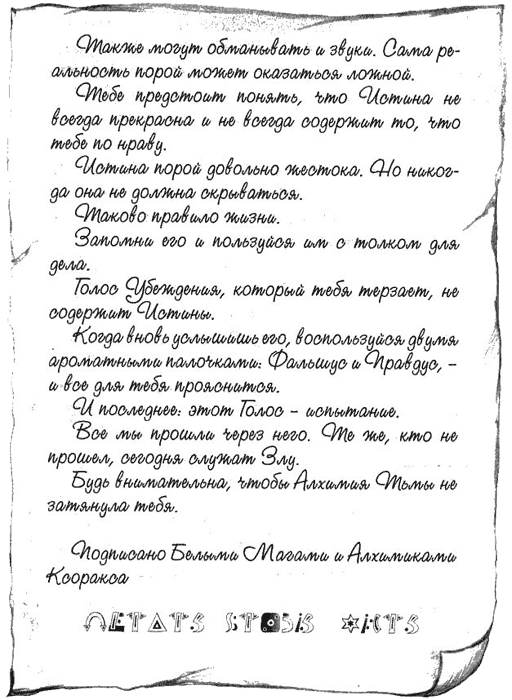 Также могут обманывать и звуки. Сама ре-
альность порой может оказаться ложной.
Тебе предстоит понять, что Истина не
всегда прекрасна и не всегда содержит то, что
тебе по нраву.
Истина порой довольно жестока. Но никог-
да она не должна скрываться.
Таково правило жизни.
Запомни его и пользуйся им с толком для
дела.
Голос Убеждения, который тебя терзает, не
содержит Истины.
Когда вновь услышишь его, воспользуйся двумя
ароматными палочками: Фальшус и Правдус, –
и все для тебя прояснится.
И последнее: этот Голос – испытание.
Все мы прошли через него. Те же, кто не
прошел, сегодня служат Злу.
Будь внимательна, чтобы Алхимия Тьмы не
затянула тебя.
Подписано Белыми Магами и Алхимиками
Ксоракса